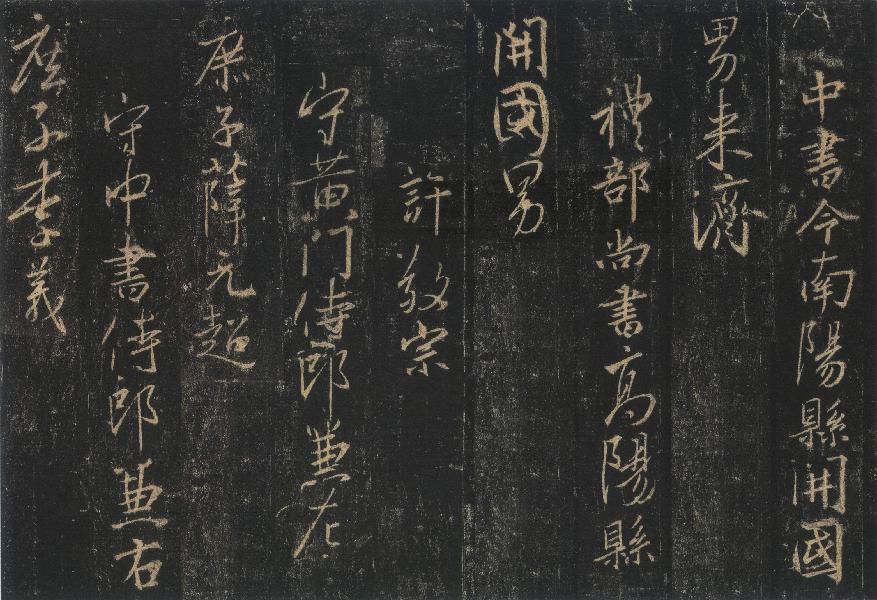 中書令南陽縣開國
男来濟
禮部尚書高陽縣
開國男
許敬宗
守黃門侍郎兼左
庶子薛元超
守中書侍郎兼右
庶子李義